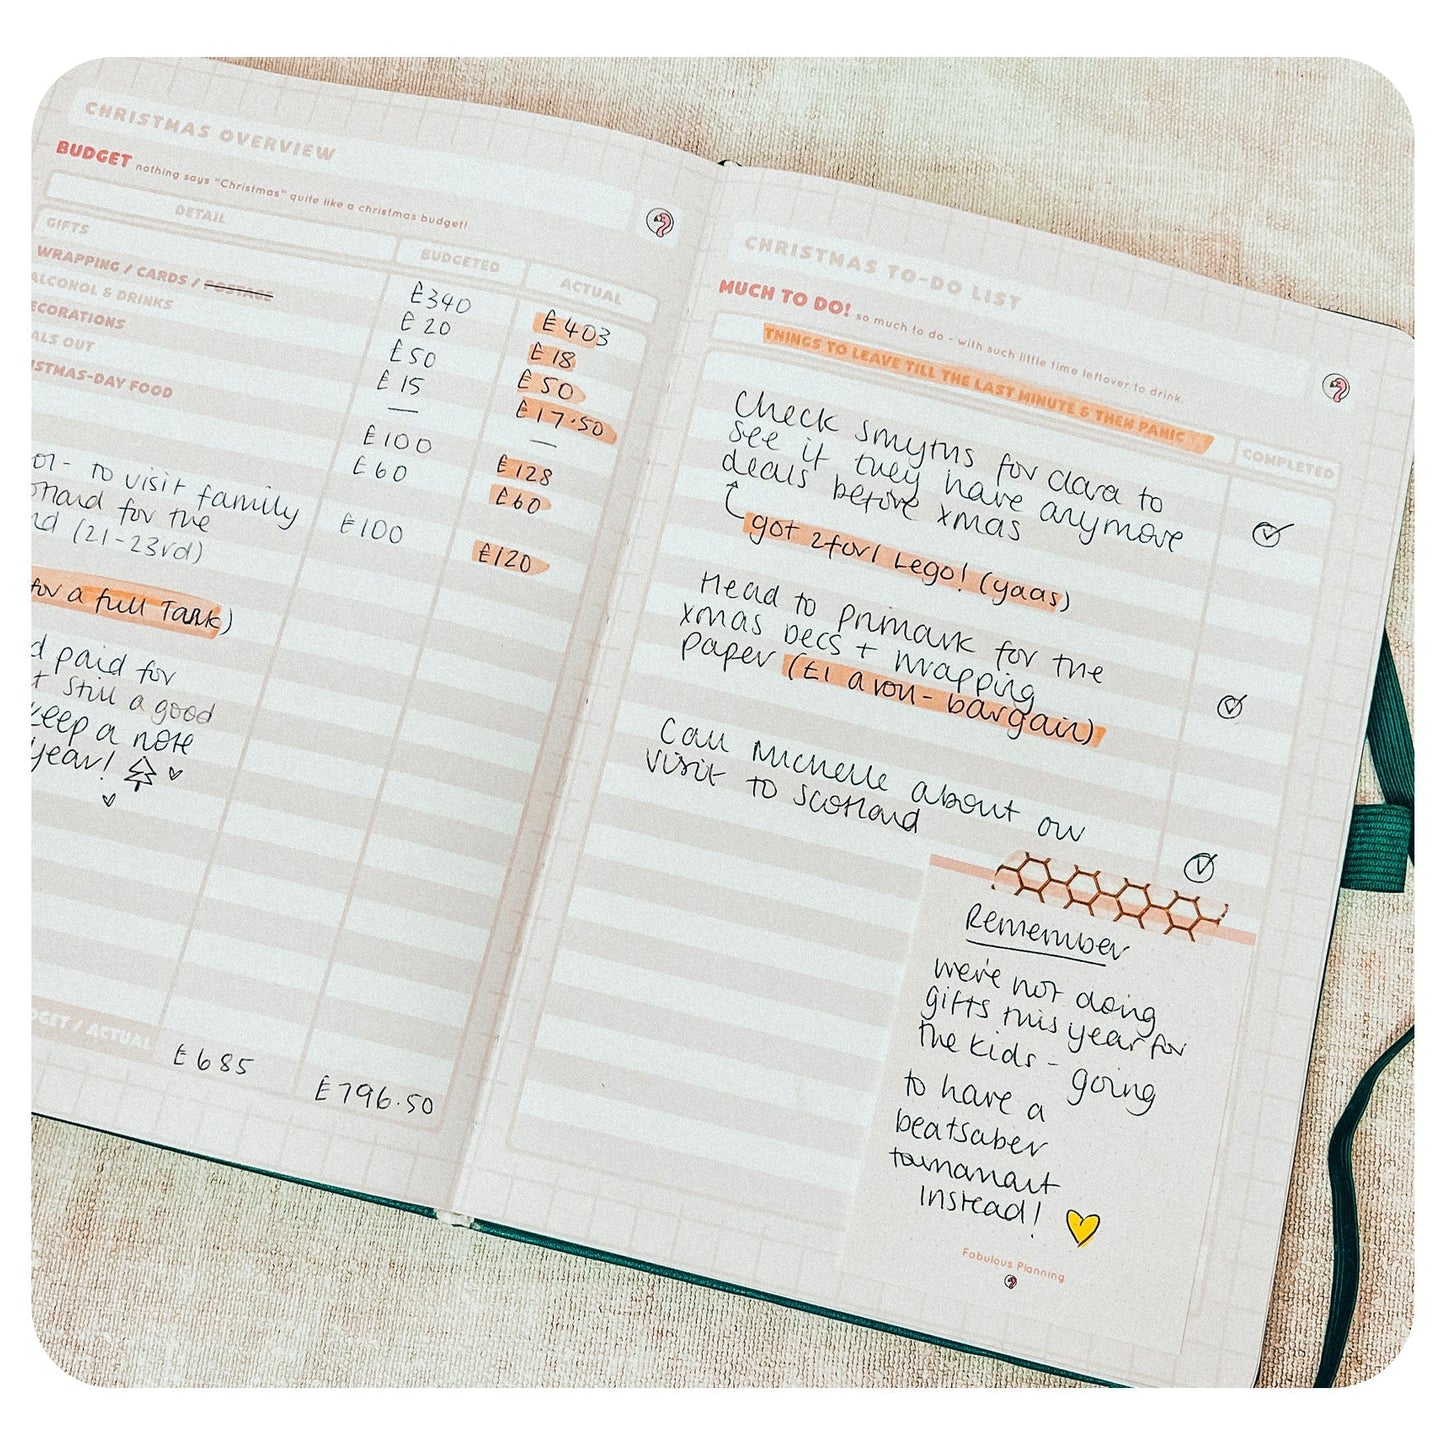 CHRISTMAS OVERVIEW
BUDGET nothing says "Christmas" quite like a christmas budget!
DETAIL BUDGETED ACTUAL
GIFTS £340 £403
WRAPPING / CARDS / POSTAGE £20 £18
ALCOHOL & DRINKS £50 £50
ECORATIONS £15 £17.50
ALS OUT — —
ISTMAS-DAY FOOD £100 £128
£60 £60
to visit family £100 £120
for the
(21-23rd)
for a full Tank)
d paid for
t still a good
keep a note
year!
DGET / ACTUAL £685 £796.50
CHRISTMAS TO-DO LIST
MUCH TO DO! so much to do - with such little time leftover to drink
THINGS TO LEAVE TILL THE LAST MINUTE & THEN PANIC COMPLETED
Check Smyths for Clara to
see if they have anymore
deals before xmas
got 2for1 Lego! (yaas)
Head to Primark for the
xmas decs + wrapping
paper (£1 a roll - bargain)
Call Michelle about our
visit to Scotland
Remember
we're not doing
gifts this year for
the kids - going
to have a
beatsaber
instead!
Fabulous Planning